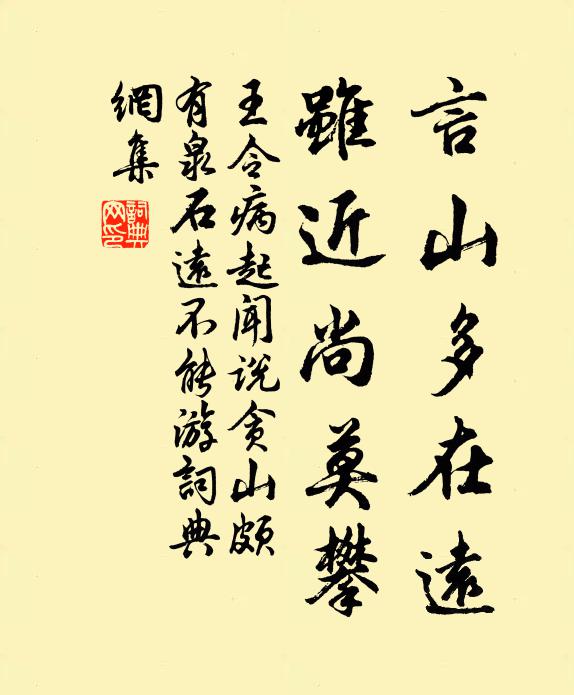 言山多在遠
雖近尚莫攀
王令病起聞說貪山頗
有泉石遠不能游詞典
網集
詞典
网印